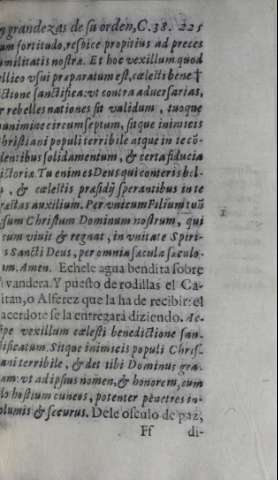 grandezas de su orden, C. 38. 225
um fortitudo, respice propitius ad preces
umilitatis nostræ. Et hoc vexillum quod
ellico vsui præparatum est, cælesti bene†
ctione sanctifica: vt contra aduersarias,
r rebelles nationes sit validum, tuoque
unimine circumseptum, sitque inimicis
hristiani populi terribile atque in te cō-
dentibus solidamentum, & certa fiducia
ictoriæ. Tu enim es Deus qui conteris bel-
, & cælestis præsidij sperantibus in te
ræstas auxilium. Per vnicum Filium tuū
sum Christum Dominum nostrum, qui
cum viuit & regnat, in vnitate Spiri-
s Sancti Deus, per omnia sæcula sæculo-
um. Amen. Echele agua bendita sobre
vandera. Y puesto de rodillas el Ca-
itan, o Alferez que la ha de recibir: el
acerdote se la entregará diziendo. Ac-
ipe vexillum cælesti benedictione san-
ificatum. Sitque inimicis populi Chris-
ani terribile, & det tibi Dominus gra-
am: vt ad ipsius nomen, & honorem, cum
lo hostium cuneos, potenter penetres in-
olumis & securus. Dele osculo de paz,
Ff di-